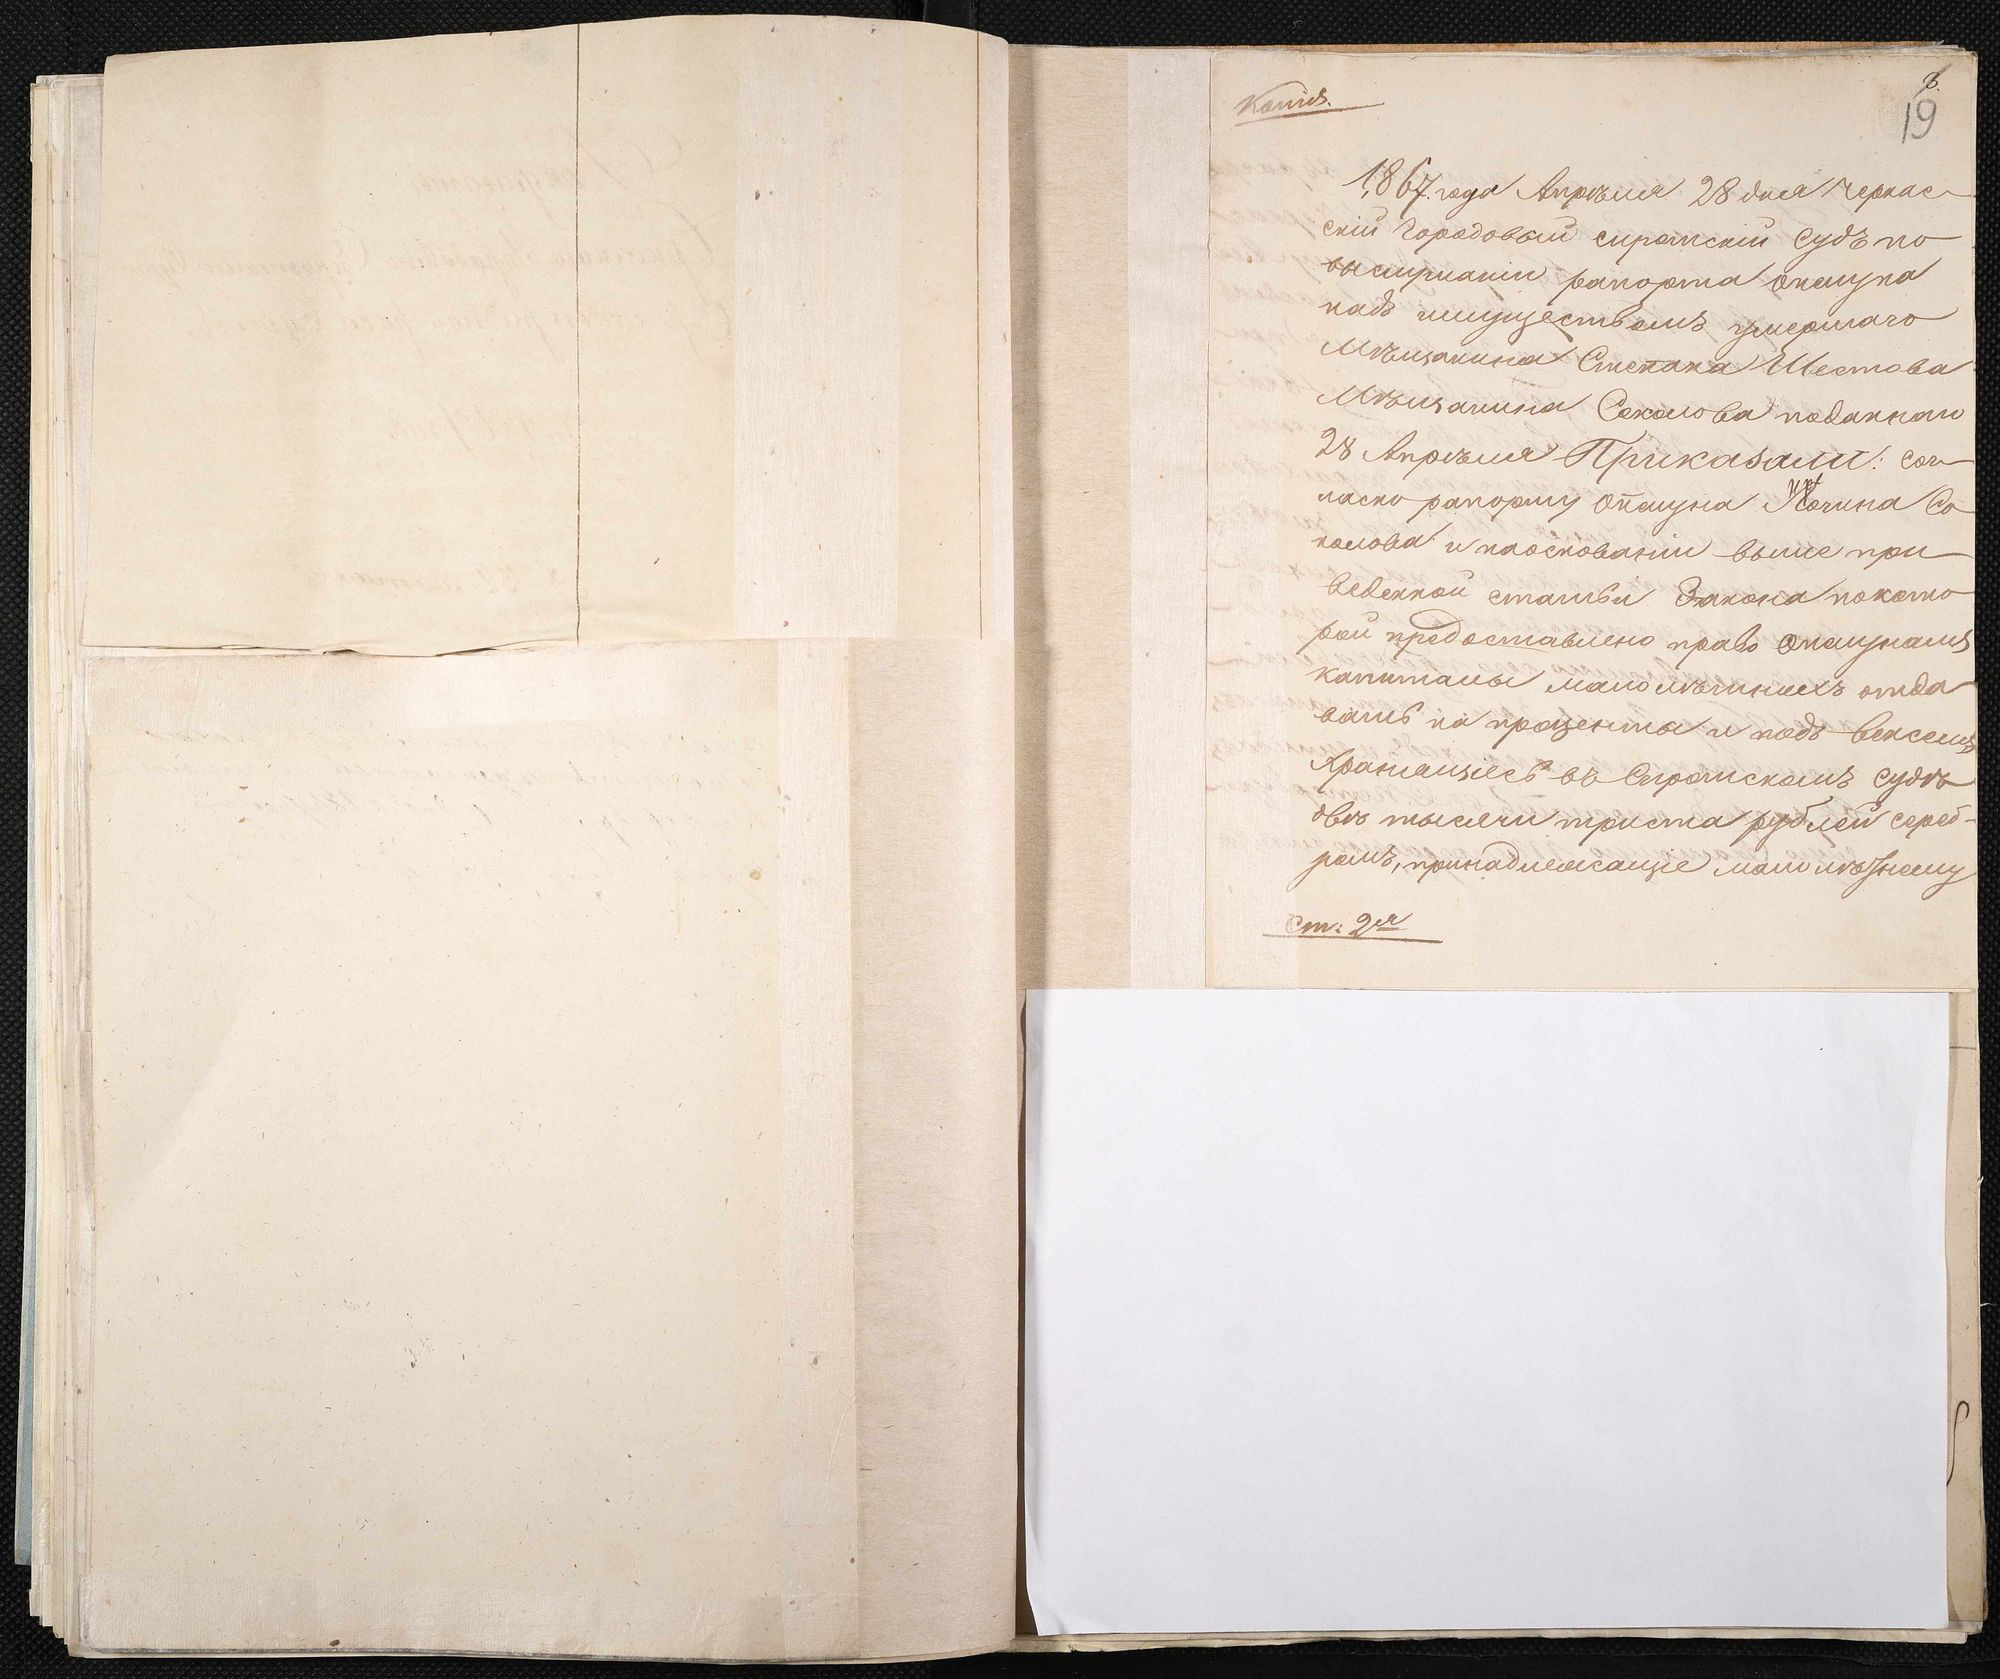 Копія.
19
1867 года Апрѣля 28 дня Черкас-
скій Городовый сиротскій Судъ по
выслушаніи рапорта опекуна
надъ имуществомъ умершаго
Мѣщанина Степана Шестова
Мѣщанина Соколова поданнаго
28 Апрѣля Приказали: сог-
ласно рапорту Опекуна Со-
колова и наоснованіи выше при-
веденной статьи Закона покото-
рой предоставлено право Опекунамъ
капиталы малолѣтнихъ отда-
вать на проценты и подъ векселя
Хранящіесь въ Сиротскомъ Судѣ
двѣ тысячи триста рублей сереб-
ромъ, принадлежащіе малолѣтнему
Ст: 2я